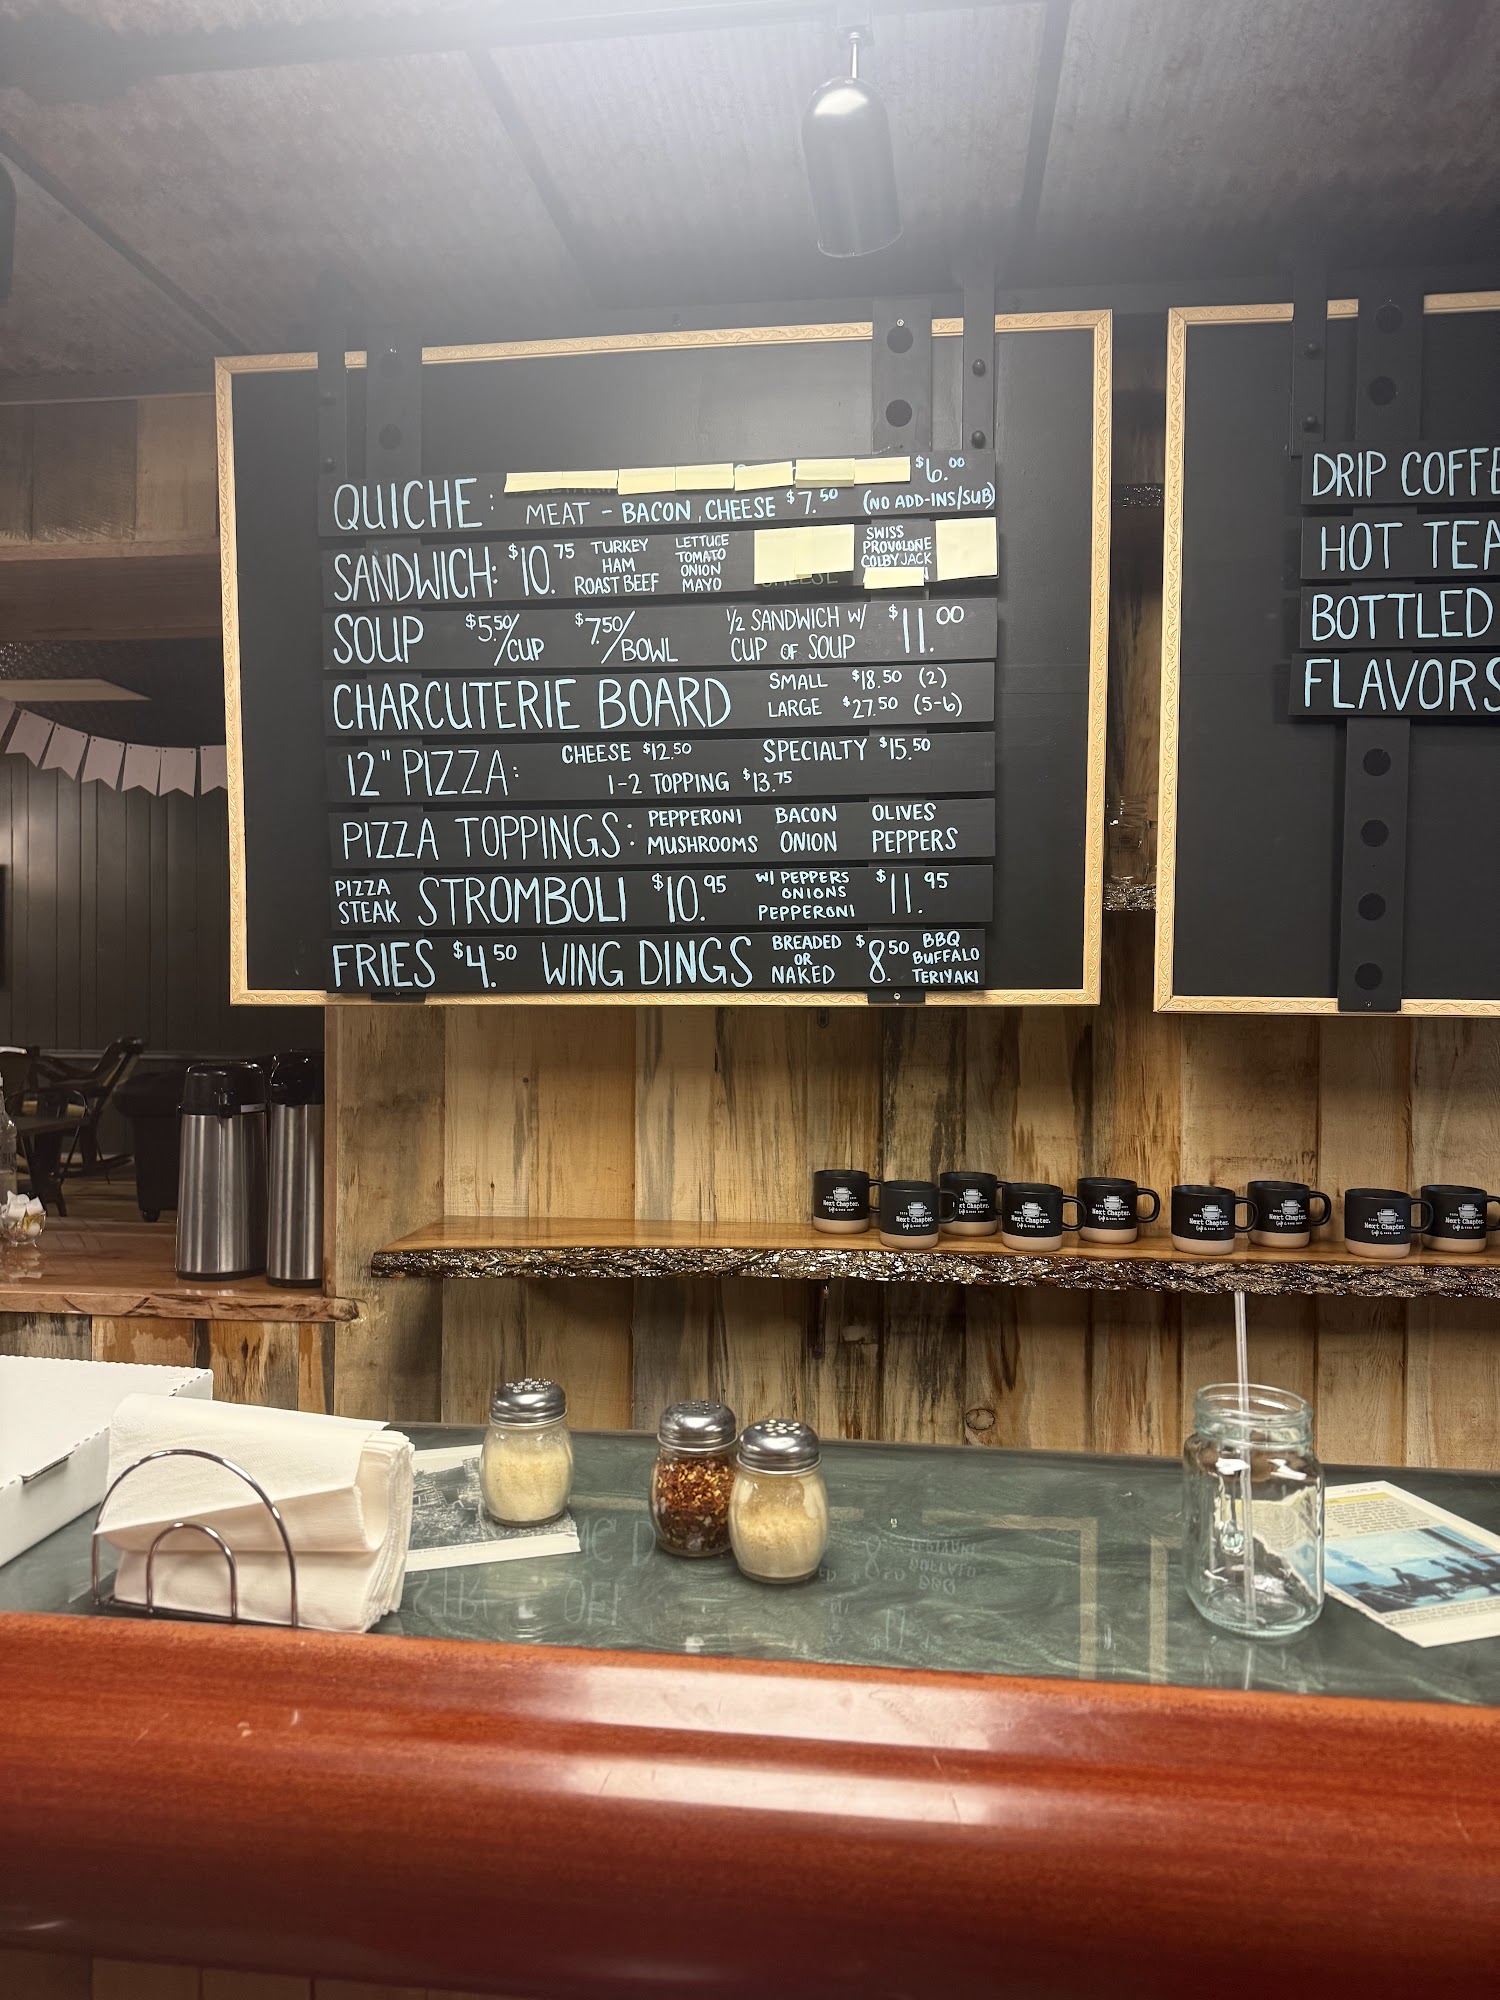 QUICHE: $6.00
MEAT - BACON, CHEESE $7.50 (NO ADD-INS/SUB)
SANDWICH: $10.75 TURKEY HAM ROAST BEEF LETTUCE TOMATO ONION MAYO CHEESE SWISS PROVOLONE COLBY JACK
SOUP $5.50/CUP $7.50/BOWL 1/2 SANDWICH W/ CUP OF SOUP $11.00
CHARCUTERIE BOARD SMALL $18.50 (2)
LARGE $27.50 (5-6)
12" PIZZA: CHEESE $12.50 SPECIALTY $15.50
1-2 TOPPING $13.75
PIZZA TOPPINGS: PEPPERONI BACON OLIVES
MUSHROOMS ONION PEPPERS
PIZZA STEAK STROMBOLI $10.95 W/ PEPPERS ONIONS PEPPERONI $11.95
FRIES $4.50 WING DINGS BREADED OR NAKED $8.50 BBQ BUFFALO TERIYAKI
DRIP COFFE
HOT TEA
BOTTLED
FLAVORS
Next Chapter.
Next Chapter.
Next Chapter.
Next Chapter.
Next Chapter.
Next Chapter.
Next Chapter.
Next Chapter.